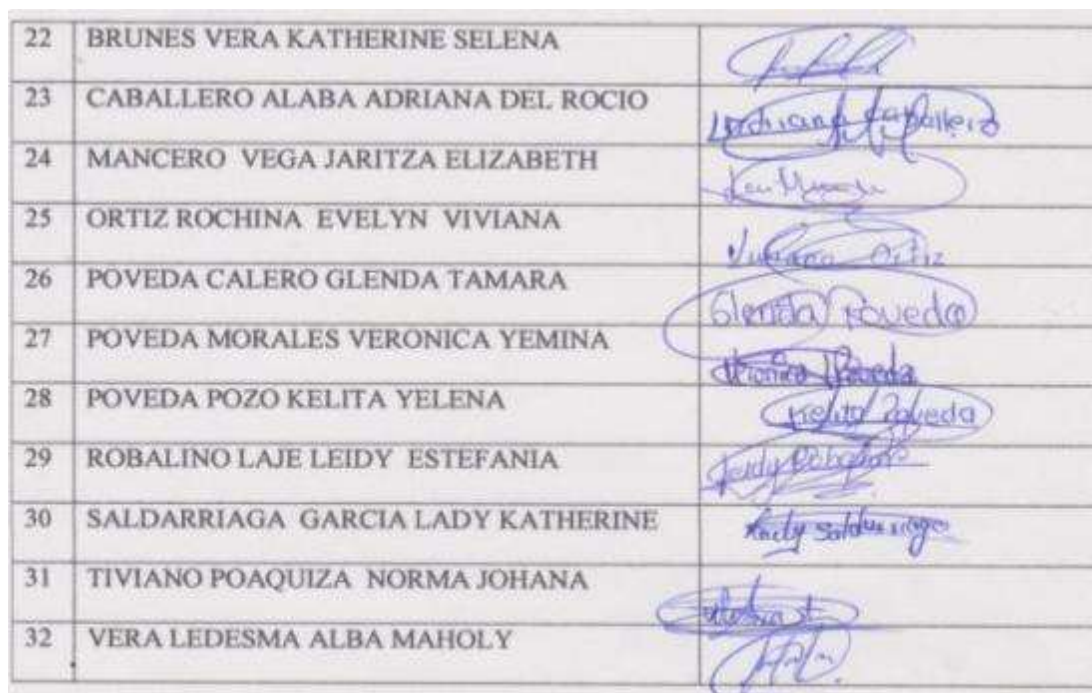 22 BRUNES VERA KATHERINE SELENA
23 CABALLERO ALABA ADRIANA DEL ROCIO Adriana Caballero
24 MANCERO VEGA JARITZA ELIZABETH
25 ORTIZ ROCHINA EVELYN VIVIANA Viviana Ortiz
26 POVEDA CALERO GLENDA TAMARA Glenda Poveda
27 POVEDA MORALES VERONICA YEMINA Veronica Poveda
28 POVEDA POZO KELITA YELENA Kelita Poveda
29 ROBALINO LAJE LEIDY ESTEFANIA Leidy
30 SALDARRIAGA GARCIA LADY KATHERINE Lady Saldarriaga
31 TIVIANO POAQUIZA NORMA JOHANA
32 VERA LEDESMA ALBA MAHOLY